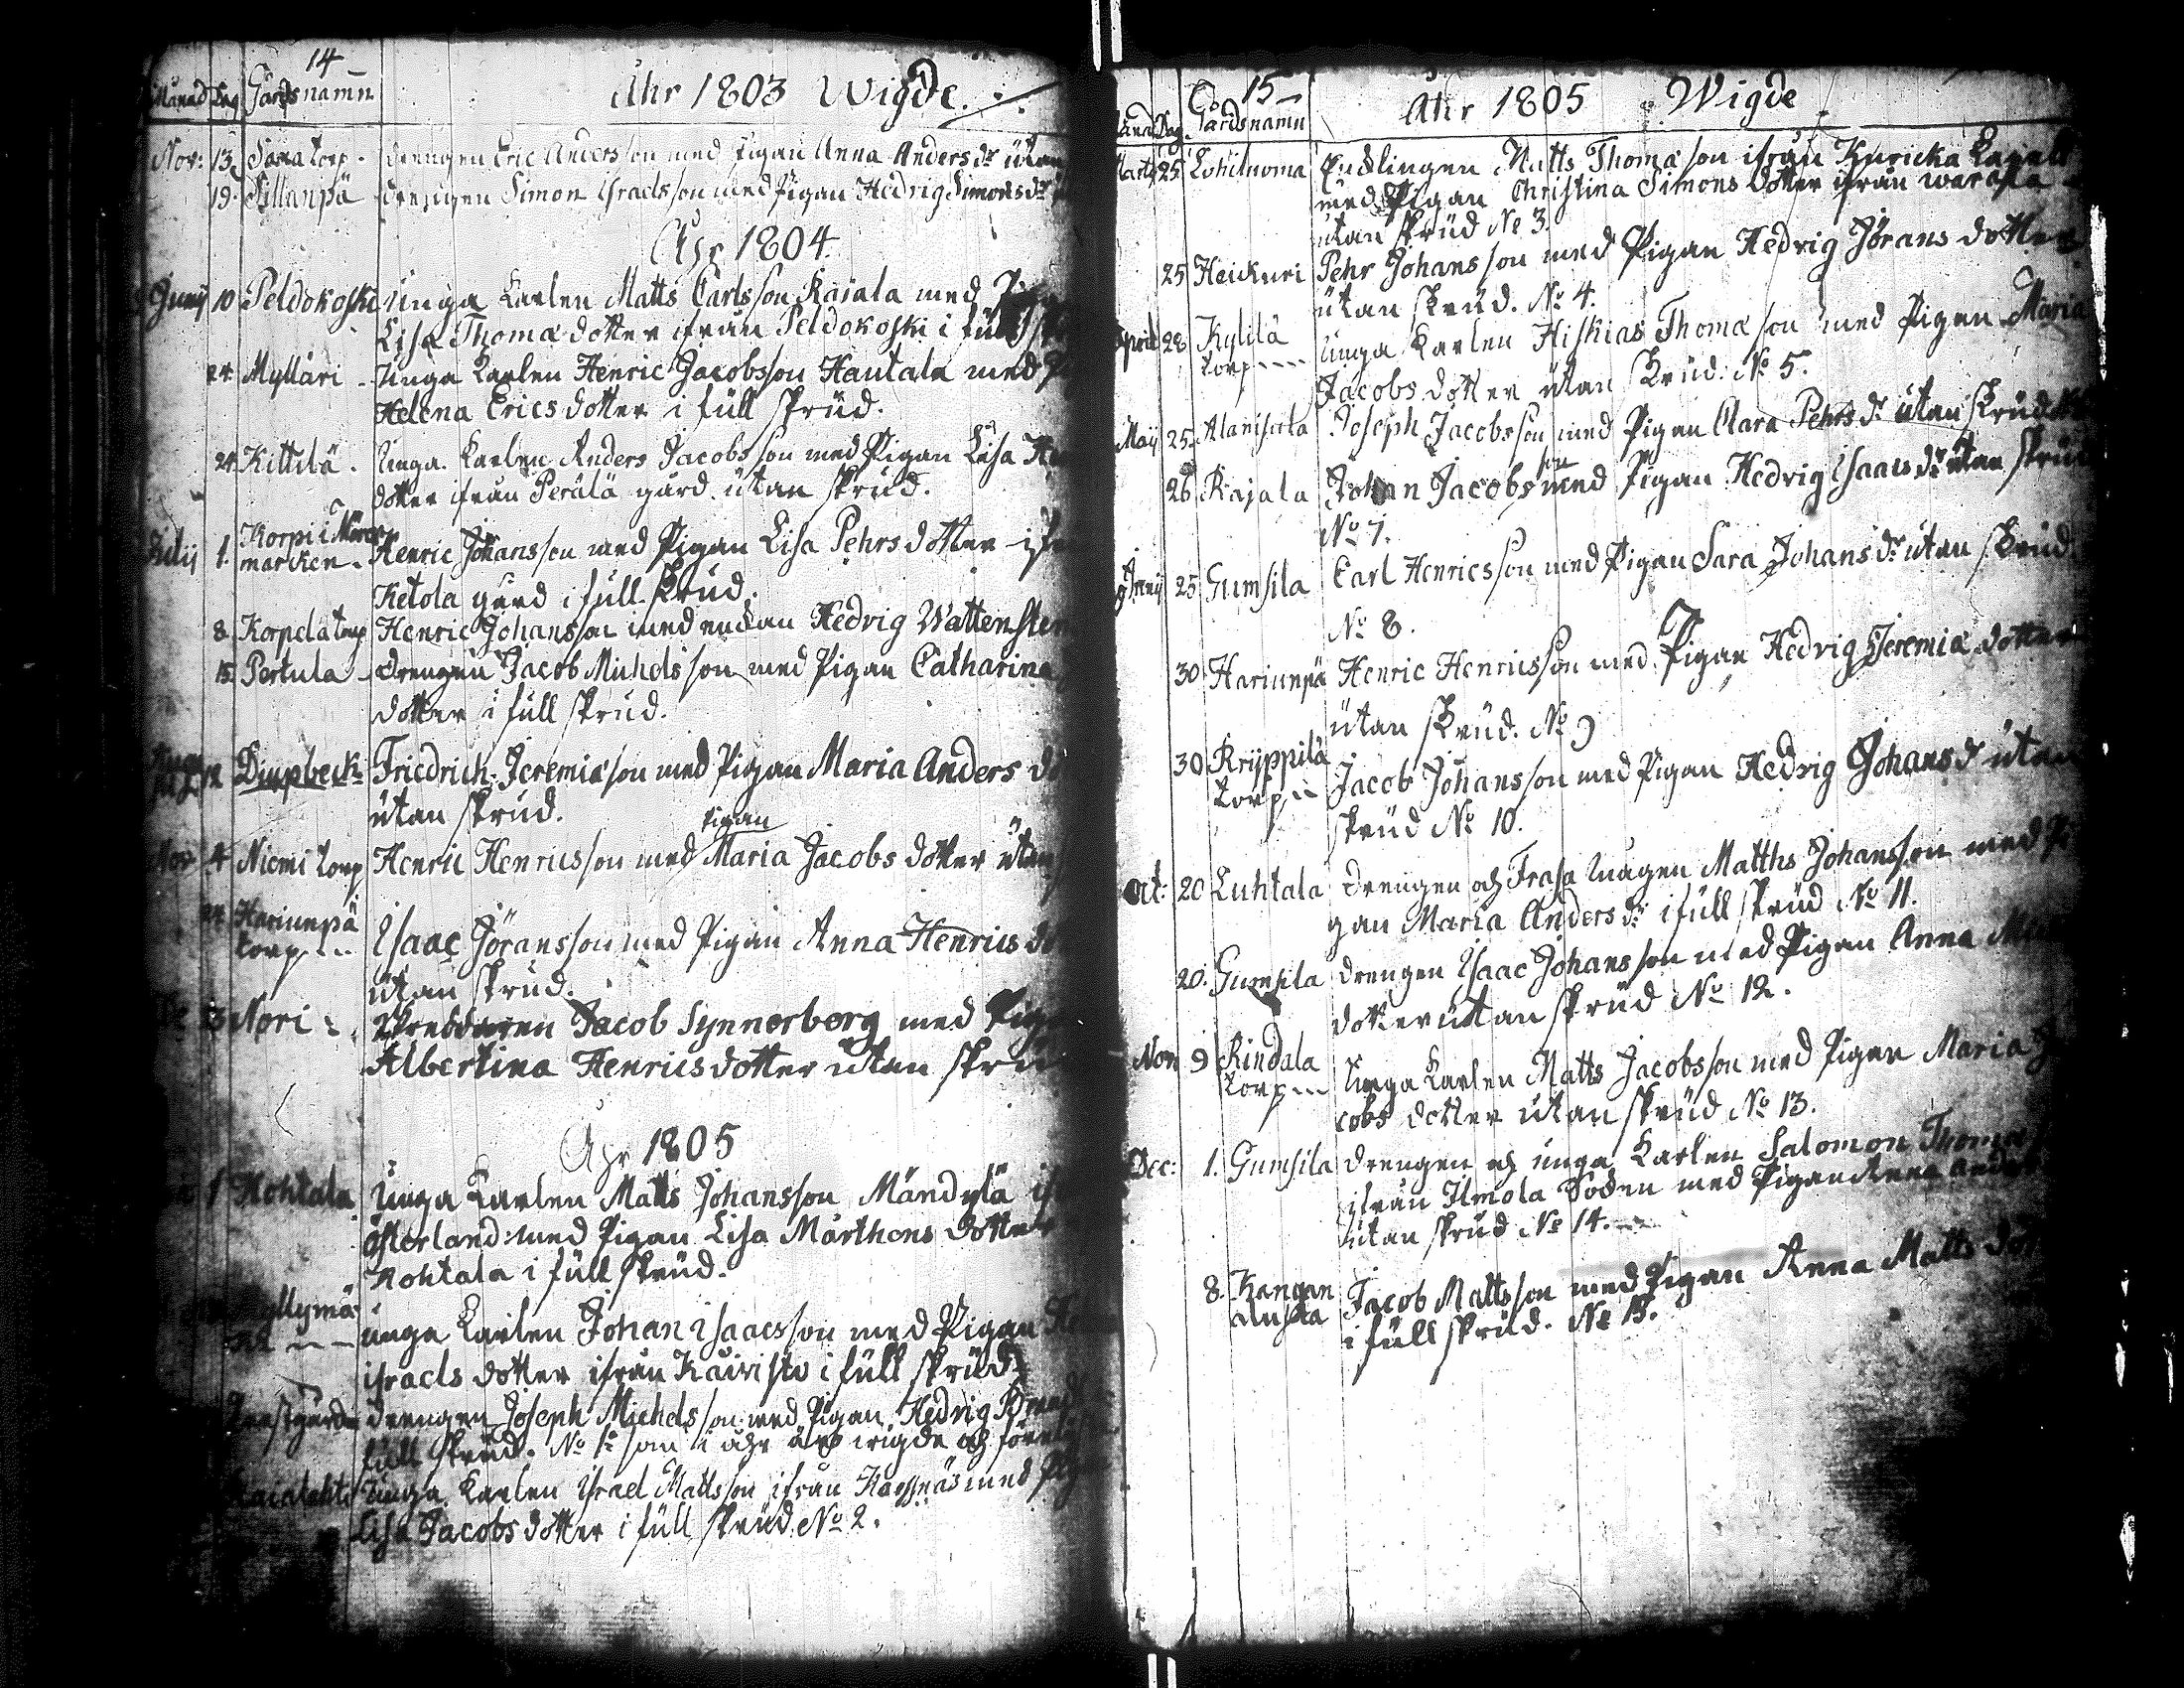 14
Månad Dag Gårdsnamn Åhr 1803 Wigde.
Nov: 13 Sara torp. drengen Eric Andersson med Pigan Anna Anders dr utan
19. Sillanpä drengen Simon Israelsson med Pigan Hedvig Simons dr
Åhr 1804.
Junij 10 Peldokoski Unga Karlen Matts Carlsson Kaiala med
Lisa Thomæ dotter ifrån Peldokoski i full
24 Mylläri - Unga Karlen Henric Jacobsson Hautala med
Helena Erics dotter i full skrud.
24. Kittilä. Unga Karlen Anders Jacobsson med Pigan Lisa
dotter ifrån Perälä gård utan skrud.
Julij 1. Korpi i
marken. Henric Johansson med Pigan Lisa Pehrs dotter
Ketola gård i full skrud.
8 Korpela torp Henric Johansson med enckan Hedvig Wattensten
15. Pertula - drengen Jacob Michelsson med Pigan Catharina
dotter i full skrud.
12 Friedrich Jeremiæson med Pigan Maria Anders
utan skrud.
Nov 4 Niemi torp Henric Henricsson med pigan Maria Jacobs dotter utan
24 Hariunpä
torp --- Isaac Jöransson med Pigan Anna Henrics
utan skrud.
Nori Jacob Synnerberg med
Albertina Henrics dotter utan
Åhr 1805
1 Kohtala Unga Karlen Matts Johansson Mändylä
Österland: med Pigan Lisa Mårthens dotter
Kohtala i full skrud.
unga Karlen Johan Isaacsson med Pigan
israels dotter ifrån Kaivisto i full skrud
drengen Joseph Michelsson med Pigan Hedvig
full skrud. No 1
Unga Karlen Israel Mattsson ifrån med
Lisa Jacobs dotter i full skrud. No 2.
15
Månad Dag Gårdsnamn Åhr 1805 Wigde
Martij 25 Lohiluoma Encklingen Matts Thomæson ifrån Kuricka Capell
med Pigan Christina Simons dotter ifrån
utan skrud No 3.
25 Heickuri Pehr Johansson med Pigan Hedvig Jörans dotter
utan skrud. No 4.
April 28 Kylilä
torp --- Unga Karlen Hiskias Thomæson med Pigan Maria
Jacobs dotter utan skrud: No 5.
Maij 25. Joseph Jacobsson med Pigan Clara Pehrs dr utan skrud
26 Kajala Johan Jacobsson med Pigan Hedvig Isaacs dr utan skrud
No 7.
Junij 25 Gumsila Carl Henricsson med Pigan Sara Johans dr utan skrud.
No 8.
30 Hariunpä Henric Henricsson med Pigan Hedvig Jeremiæ dotter
utan skrud. No 9
30 Kryppilä
torp -- Jacob Johansson med Pigan Hedvig Johans d utan
skrud No 10.
Oct: 20 Luhtala drengen och Matths Johansson med Pi
gan Maria Anders dr i full skrud No 11.
20. Gumsila drengen Isaac Johansson med Pigan Anna
dotter utan skrud No 12.
Nov 9 Rindala
torp --- Unga Karlen Matts Jacobsson med Pigan Maria Ja
cobs dotter utan skrud No 13.
Dec: 1. Gumsila drengen och unga Karlen Salomon Thomæ
ifrån Ilmola Socken med Pigan Anna
utan skrud No 14.
8. Kangan Jacob Mattsson med Pigan Anna Matts
i full skrud. No 15.